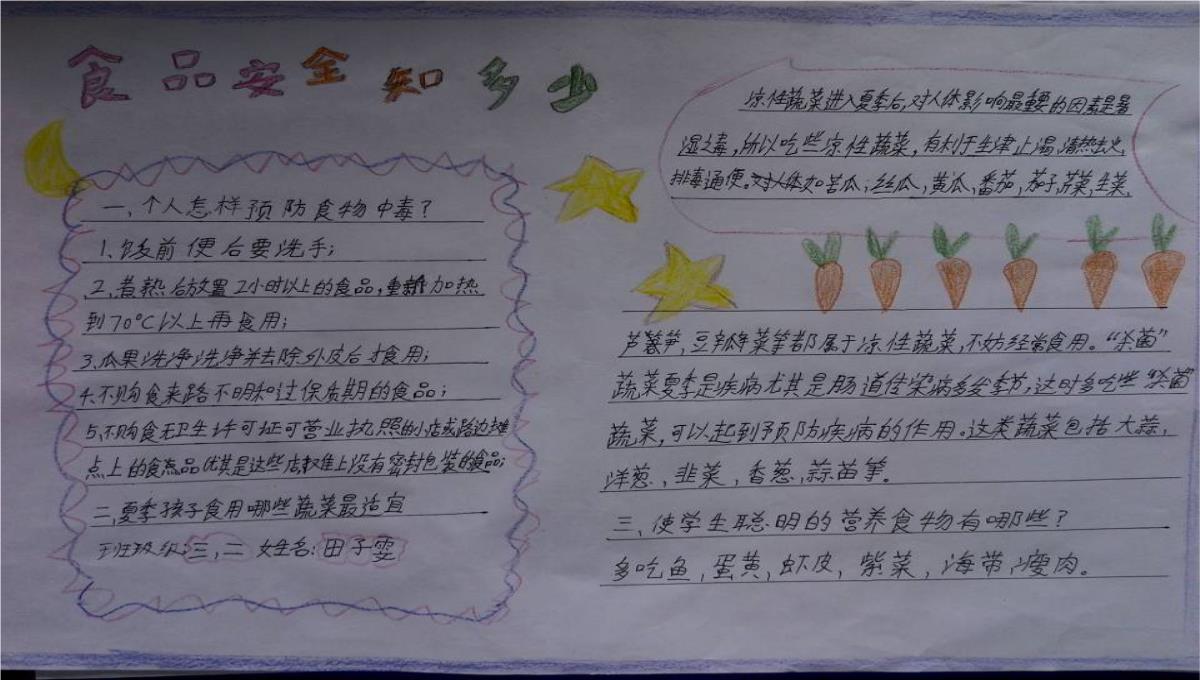 食品安全知多少
一、个人怎样预防食物中毒?
1、饭前便后要洗手;
2、煮熟后放置2小时以上的食品,重新加热
到70°C以上再食用;
3、瓜果洗净洗净并去除外皮后才食用;
4.不购食来路不明和过保质期的食品;
5、不购食无卫生许可证可营业执照的小店或路边摊
点上的食品尤其是这些店摊上没有密封包装的食品;
二、夏季孩子食用哪些蔬菜最适宜
班级:三,二 姓名:田子雯
凉性蔬菜进入夏季后,对人体影响最重要的因素是暑
湿之毒,所以吃些凉性蔬菜,有利于生津止渴,清热去火,
排毒通便。对人体如苦瓜,丝瓜,黄瓜,番茄,茄子,芹菜,生菜,
芦笋,豆瓣菜等都属于凉性蔬菜,不妨经常食用。“杀菌”
蔬菜夏季是疾病尤其是肠道传染病多发季节,这时多吃些“杀菌
蔬菜,可以起到预防疾病的作用。这类蔬菜包括大蒜,
洋葱,韭菜,香葱,蒜苗等。
三、使学生聪明的营养食物有哪些?
多吃鱼,蛋黄,虾皮,紫菜,海带,瘦肉。